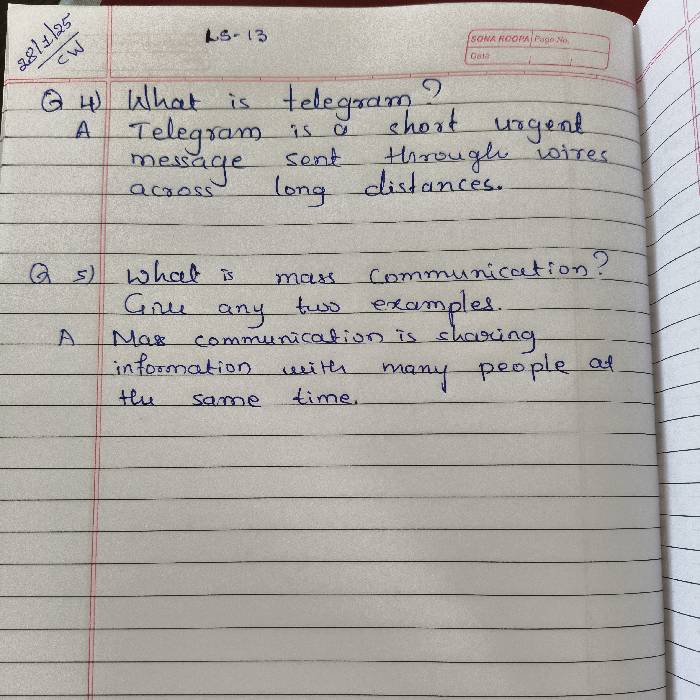 28/1/25
CW
LS-13
SONA ROOPA Page No.
Date
Q 4) What is telegram?
A Telegram is a short urgent
message sent through wires
across long distances.
Q 5) What is mass communication?
Give any two examples.
A Mass communication is sharing
information with many people at
the same time.